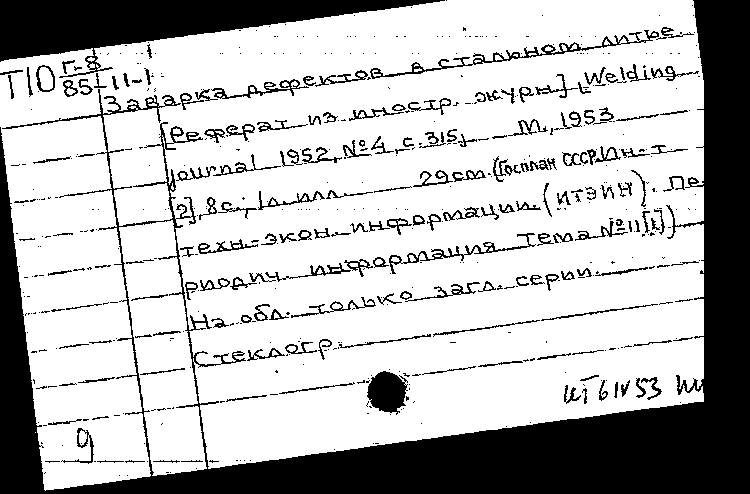 Т10 Г-8
85-11-1
Заварка дефектов в стальном литье.
[Реферат из иностр. журн.] „Welding
journal 1952, №4, с. 315, М., 1953
[2], 8с., 1л. илл. 29см. (Госплан СССР. Ин-т
техн.-экон. информации (ИТЭИН). Пе
риодич. информация Тема №11[1])
На обл. только загл. серии.
Стеклогр.
9